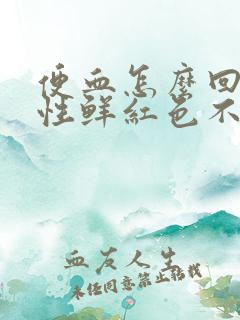 便血怎麽回
性鮮紅色不
血友人生
未经同意禁止转载